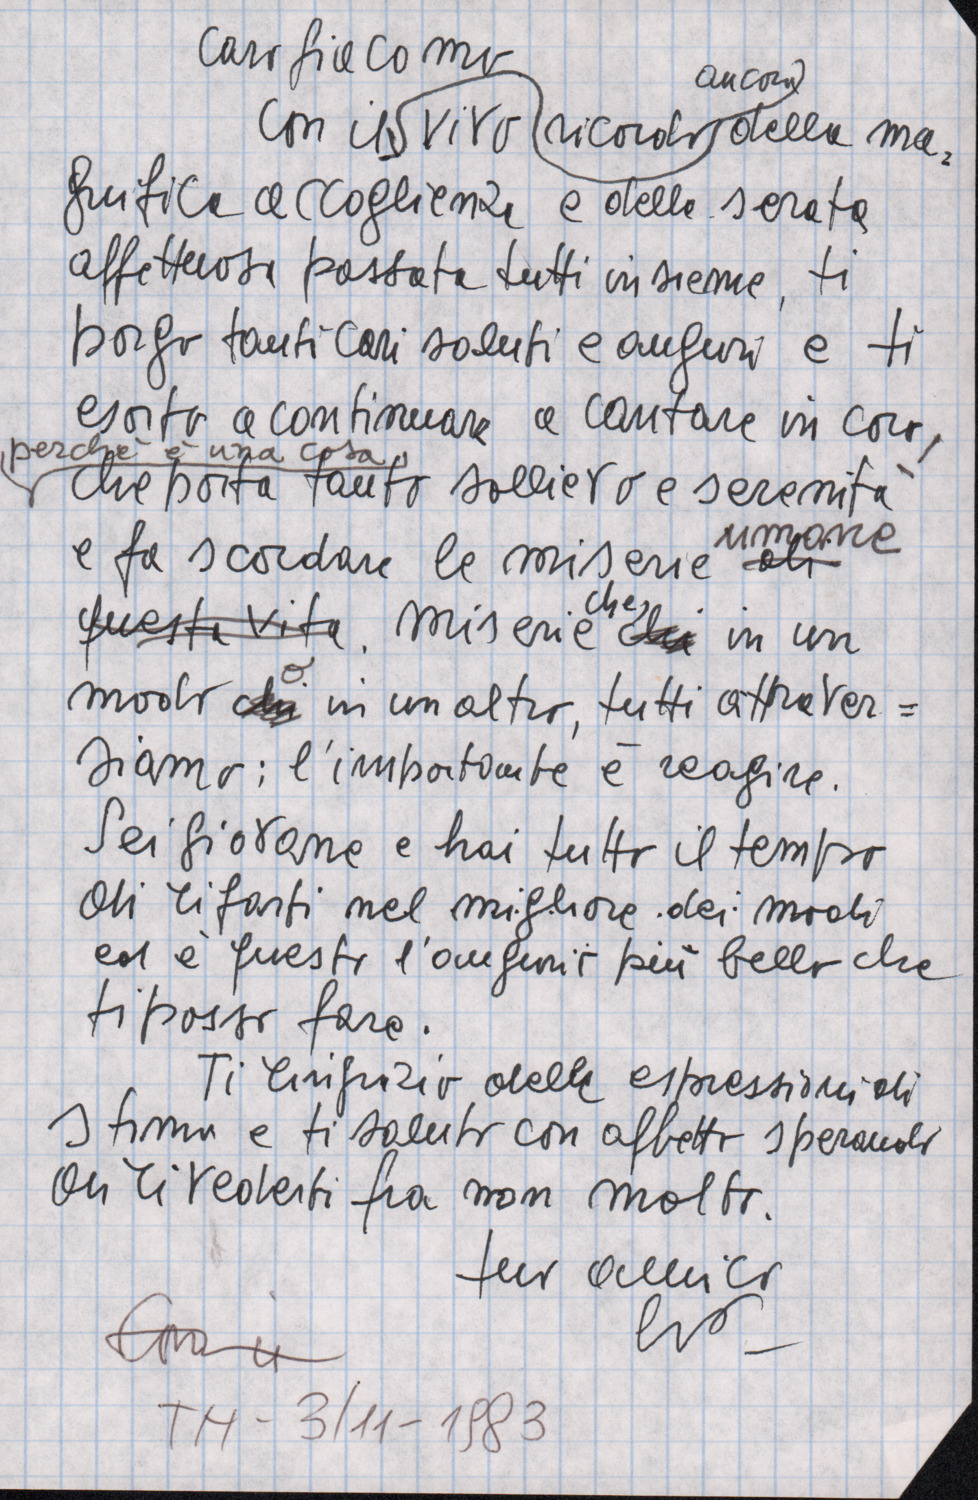 Caro Giacomo
ancora
Con il vivo ricordo della ma=
gnifica accoglienza e della serata
affettuosa passata tutti insieme, ti
porgo tanti cari saluti e auguri e ti
esorto a continuare a cantare in coro,
perchè è una cosa
che porta tanto sollievo e serenità
umane
e fa scordare le miserie di
questa vita. Miserie che in un
modo o in un altro, tutti attraver=
siamo: l'importante è reagire.
Sei giovane e hai tutto il tempo
di rifarti nel migliore dei modi
ed è questo l'augurio più bello che
ti posso fare.
Ti ringrazio delle espressioni di
stima e ti saluto con affetto sperando
di rivederti fra non molto.
tuo amico
TH - 3/11 - 1983